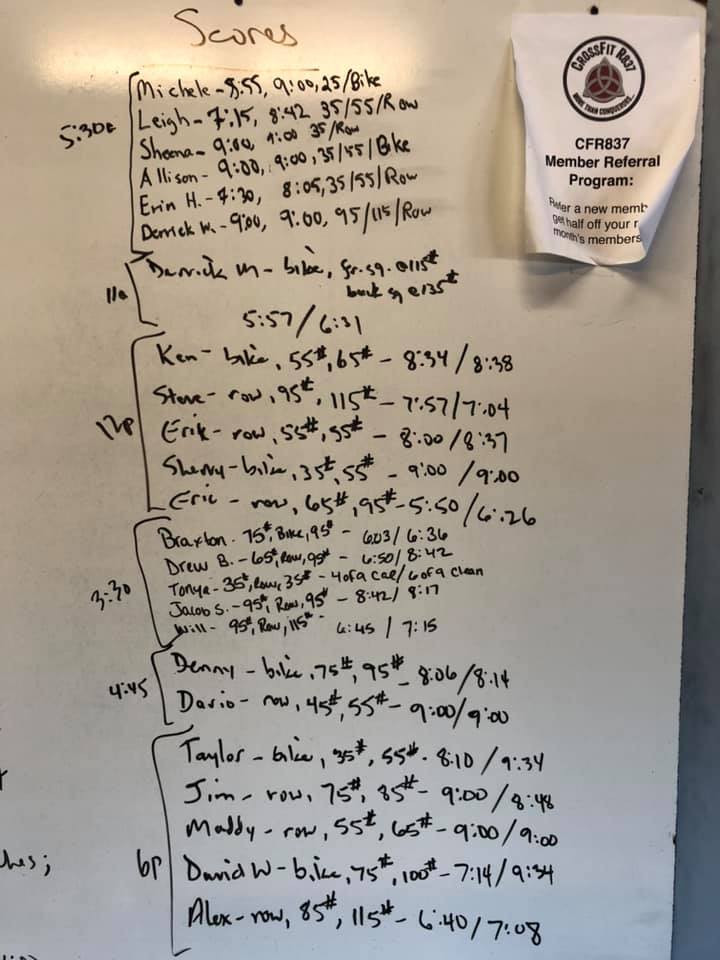 Scores
5:30a
Michele - 8:55, 9:00, 25/Bike
Leigh - 7:15, 8:42 35/55/Row
Sheena - 9:00, 9:00 35/Row
Allison - 9:00, 9:00, 35/55/Bike
Erin H. - 7:30, 8:05, 35/55/Row
Derrick W. - 9:00, 9:00, 95/115/Row
11a
Derrick M - bike, fr. sq. @115#
back sq @135#
5:57/6:31
12p
Ken - bike, 55#, 65# - 8:34/8:38
Steve - row, 95#, 115# - 7:57/7:04
Erik - row, 55#, 55# - 8:00/8:37
Sherry - bike, 35#, 55# - 9:00/9:00
Eric - row, 65#, 95# - 5:50/6:26
3:30
Braxton - 75#, Bike, 95# - 6:03/6:36
Drew B. - 65#, Row, 95# - 6:50/8:42
Tonya - 35#, Row, 35# - 4 of 9 cal/6 of 9 clean
Jacob S. - 95#, Row, 95# - 8:42/8:17
Will - 95#, Row, 115# - 6:45/7:15
4:45
Denny - bike, 75#, 95# - 8:06/8:14
Dario - row, 45#, 55# - 9:00/9:00
6p
Taylor - bike, 35#, 55# - 8:10/9:34
Jim - row, 75#, 85# - 9:00/8:48
Maddy - row, 55#, 65# - 9:00/9:00
David W - bike, 75#, 100# - 7:14/9:34
Alex - row, 85#, 115# - 6:40/7:08
hes;
CROSSFIT R837
MORE THAN CONQUERORS...
CFR837
Member Referral
Program:
Refer a new memb
get half off your
month's members